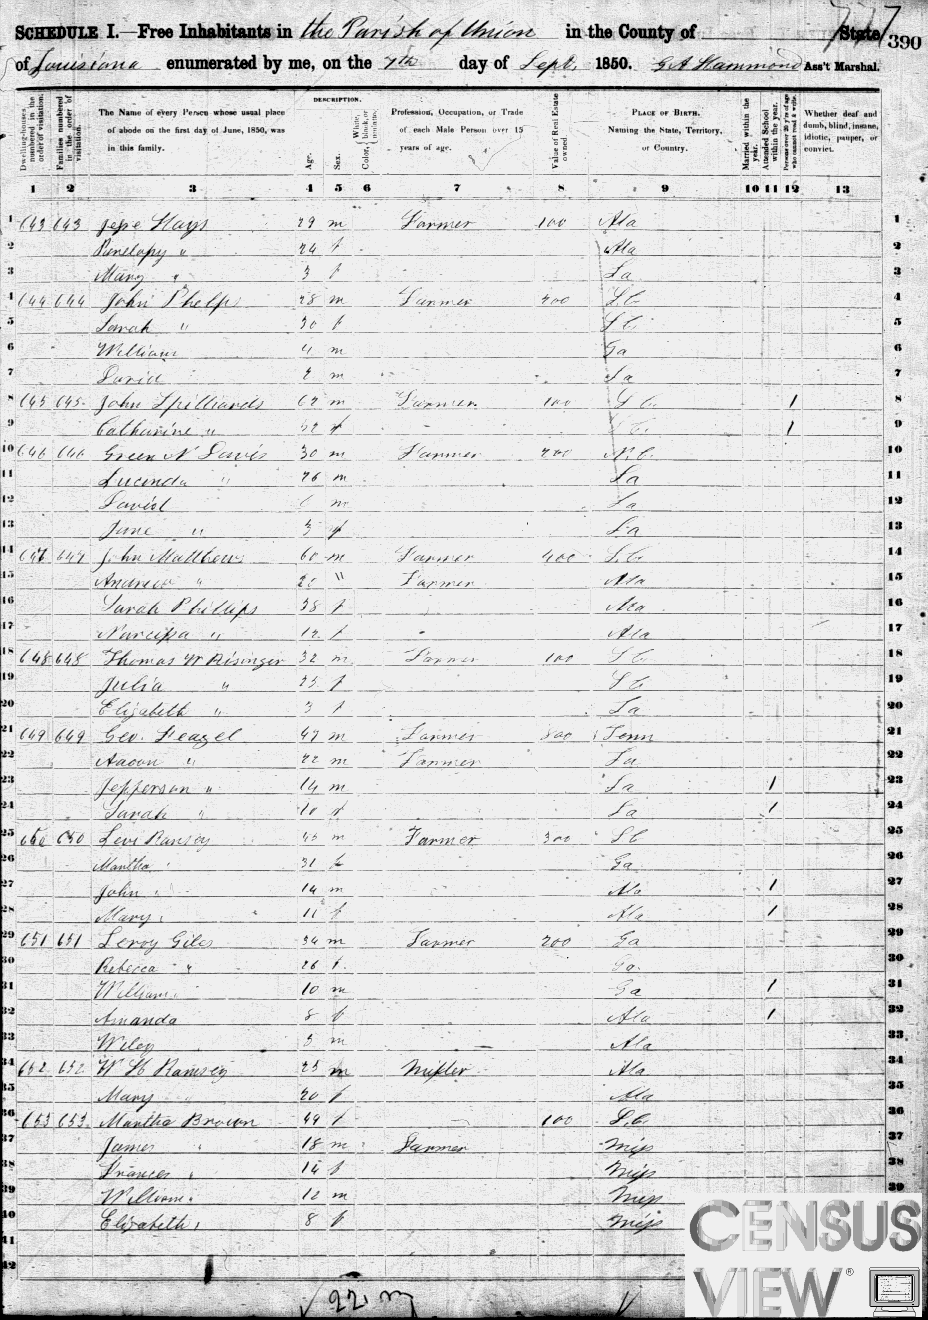 717
SCHEDULE I.—Free Inhabitants in the Parish of Union in the County of State 390
of Louisiana enumerated by me, on the 7th day of Sept. 1850. G A Hammond Ass't Marshal.
Dwelling-houses numbered in the order of visitation.
Families numbered in the order of visitation.
The Name of every Person whose usual place of abode on the first day of June, 1850, was in this family.
DESCRIPTION.
Age.
Sex.
Color, White, black, or mulatto.
Profession, Occupation, or Trade of each Male Person over 15 years of age.
Value of Real Estate owned.
PLACE OF BIRTH. Naming the State, Territory, or Country.
Married within the year.
Attended School within the year.
Persons over 20 y'rs of age who cannot read & write.
Whether deaf and dumb, blind, insane, idiotic, pauper, or convict.
1 2 3 4 5 6 7 8 9 10 11 12 13
1 643 643 Jesse Hays 29 m Farmer 100 Ala 1
2 Penelopy " 24 f Ala 2
3 Mary " 3 f La 3
4 644 644 John Phelps 28 m Farmer 200 S.C. 4
5 Sarah " 30 f S C 5
6 William 4 m Ga 6
7 David 2 m La 7
8 645 645 John Spilliards 62 m Farmer 100 S C. 1 8
9 Catharine " 52 f C. 1 9
10 646 646 Green N Davis 30 m Farmer 200 N.C. 10
11 Lucinda " 26 m La 11
12 David m La 12
13 Jane " 3 f La 13
14 647 647 John Matthews 60 m Farmer 400 S.C. 14
15 Andrew " 20 " Farmer Ala 15
16 Sarah Phillips 38 f Ala 16
17 Narcissa " 12 f Ala 17
18 648 648 Thomas W Risinger 32 m Farmer 100 S C 18
19 Julia " 25 f S C 19
20 Elizabeth " 3 f La 20
21 649 649 Geo. Feazel 47 m Farmer 800 Tenn 21
22 Aaron " 22 m Farmer La 22
23 Jefferson " 14 m La 1 23
24 Sarah " 10 f La 1 24
25 650 650 Levi Ramsey 45 m Farmer 300 S C 25
26 Martha " 31 f Ga 26
27 John " 14 m Ala 1 27
28 Mary " 11 f Ala 1 28
29 651 651 Leroy Giles 34 m Farmer 200 Ga 29
30 Rebecca " 26 f. Ga. 30
31 William " 10 m Ga 1 31
32 Amanda 8 f Ala 1 32
33 Wiley 3 m Ala 33
34 652 652 W H Ramsey 25 m Miller Ala 34
35 Mary 20 f Ala 35
36 653 653 Martha Brown 49 f 100 S.C. 36
37 James " 18 m Farmer Miss 37
38 Frances " 14 f Miss 38
39 William " 12 m Miss 39
40 Elizabeth " 8 f Miss
41
42
22 m
CENSUS VIEW®